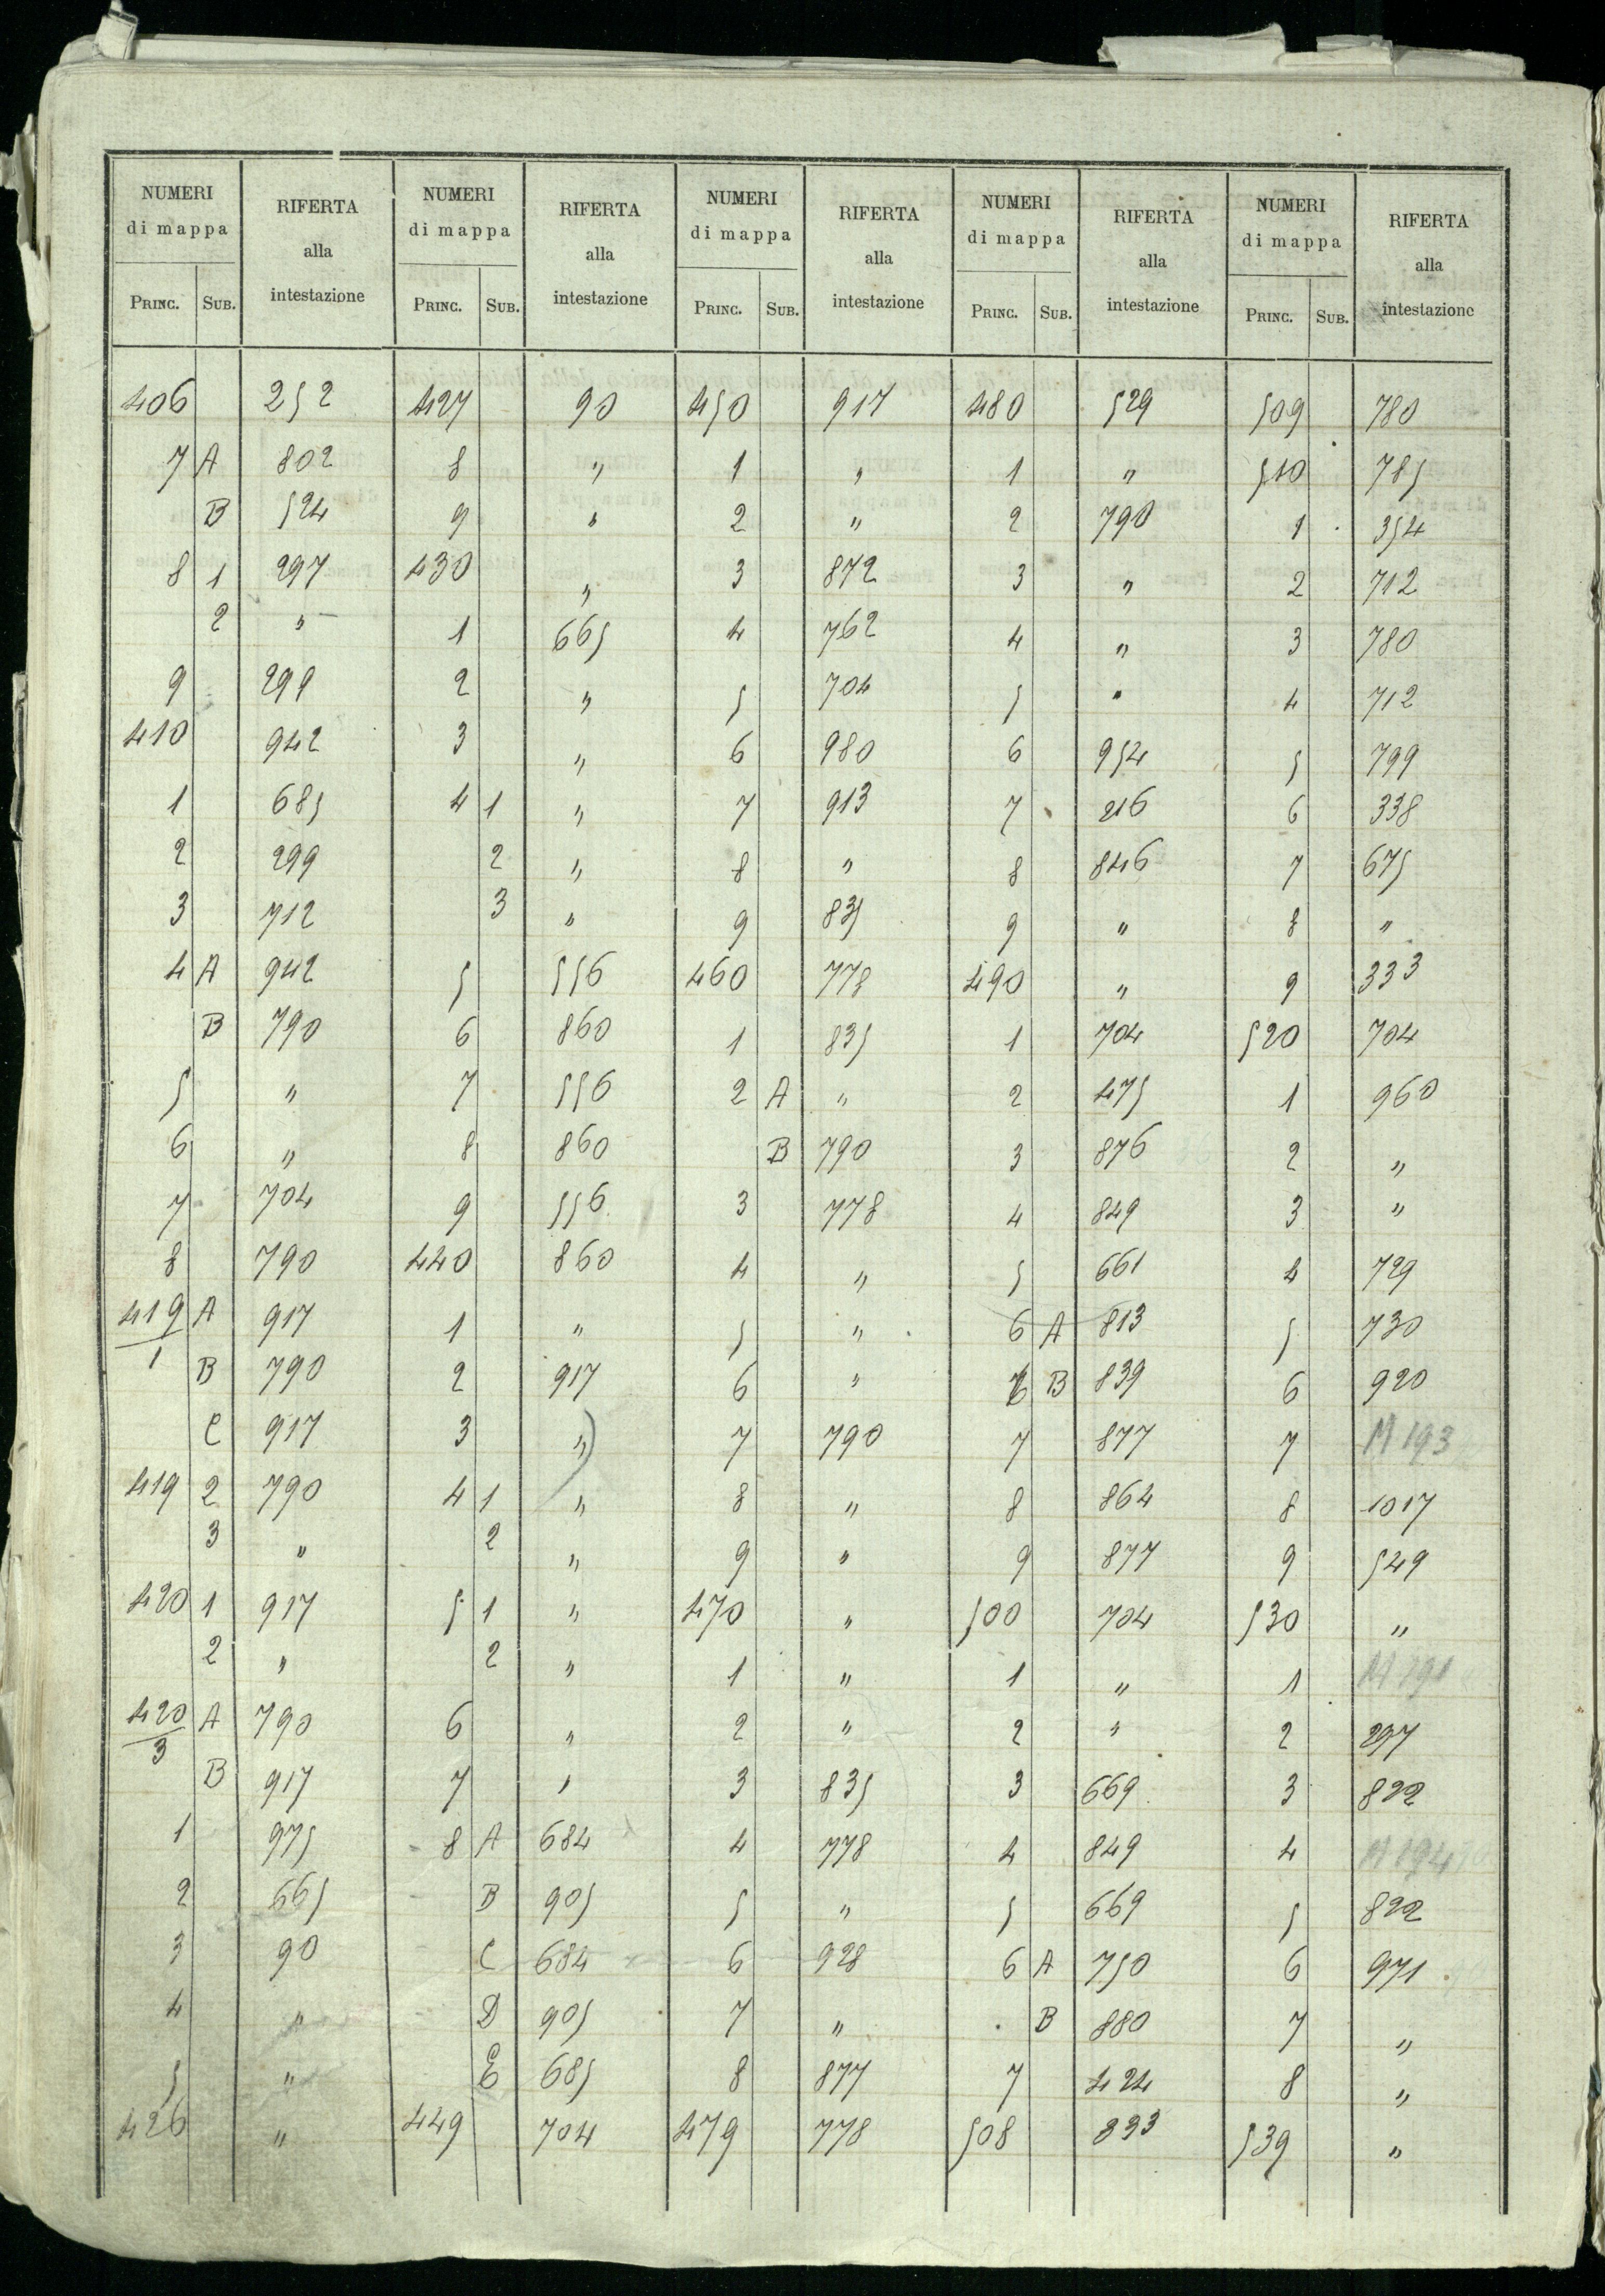 NUMERI di mappa | RIFERTA alla intestazione | NUMERI di mappa | RIFERTA alla intestazione | NUMERI di mappa | RIFERTA alla intestazione | NUMERI di mappa | RIFERTA alla intestazione | NUMERI di mappa | RIFERTA alla intestazione
PRINC. | SUB. | PRINC. | SUB. | PRINC. | SUB. | PRINC. | SUB. | PRINC. | SUB.
406 252 427 90 450 917 480 529 509 780
7 A 802 8 " 1 " 1 " 510 785
B 524 9 " 2 " 2 790 1 354
8 1 297 430 " 3 872 3 " 2 712
2 " 1 665 4 762 4 " 3 780
9 299 2 " 5 704 5 " 4 712
410 942 3 " 6 980 6 954 5 799
1 685 4 1 " 7 913 7 216 6 338
2 299 2 " 8 " 8 846 7 675
3 712 3 " 9 835 9 " 8 "
4 A 942 5 556 460 778 490 " 9 333
B 790 6 860 1 835 1 704 520 704
5 " 7 556 2 A " 2 475 1 960
6 " 8 860 B 790 3 876 2 "
7 704 9 556 3 778 4 849 3 "
8 790 440 860 4 " 5 661 4 729
419/1 A 917 1 " 5 " 6 A 813 5 730
B 790 2 917 6 " 6 B 839 6 920
C 917 3 " 7 790 7 877 7 M 193
419 2 790 4 1 " 8 " 8 864 8 1017
3 " 2 " 9 " 9 877 9 549
420 1 917 5 1 " 470 " 500 704 530 "
2 " 2 " 1 " 1 " 1
420/3 A 790 6 " 2 " 2 " 2 297
B 917 7 " 3 835 3 669 3 822
1 975 8 A 684 4 778 4 849 4
2 665 B 905 5 " 5 669 5 822
3 90 C 684 6 928 6 A 750 6 971
4 " D 905 7 " B 880 7 "
5 " E 685 8 877 7 424 8 "
426 " 449 704 479 778 508 333 539 "